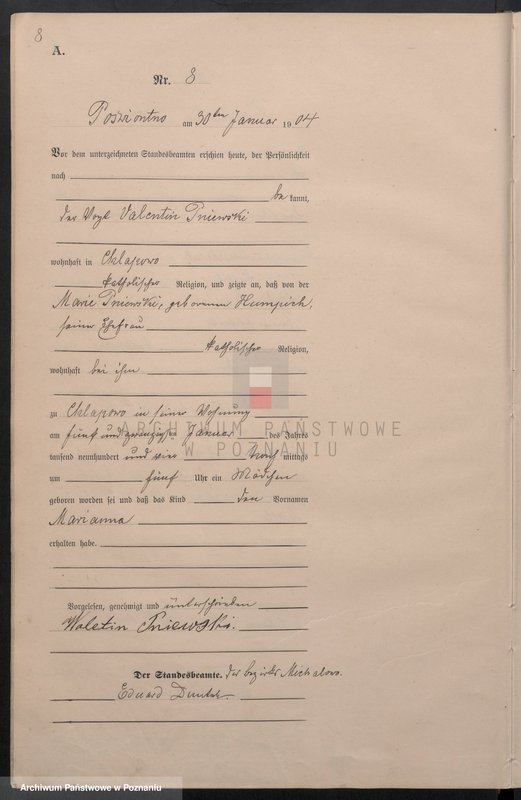 8
A.
Nr. 8
am 30ten Januar 1904
Vor dem unterzeichneten Standesbeamten erschien heute, der Persönlichkeit
nach
be kannt,
der Vogt Valentin Pniewski
wohnhaft in Chlapowo
katholischer Religion, und zeigte an, daß von der
Marie Pniewski, geborenen
seiner Ehefrau
katholischer Religion,
wohnhaft bei ihm
zu Chlapowo in seiner Wohnung
am fünf und zwanzigsten Januar des Jahres
tausend neunhundert und vier Nach mittags
um fünf Uhr ein Mädchen
geboren worden sei und daß das Kind den Vornamen
Marianna
erhalten habe.
Vorgelesen, genehmigt und unterschrieben
Waletin Pniewski.
Der Standesbeamte. des bezirks Michalowo.
Eduard
ARCHIWUM PAŃSTWOWE
W POZNANIU
Archiwum Państwowe w Poznaniu